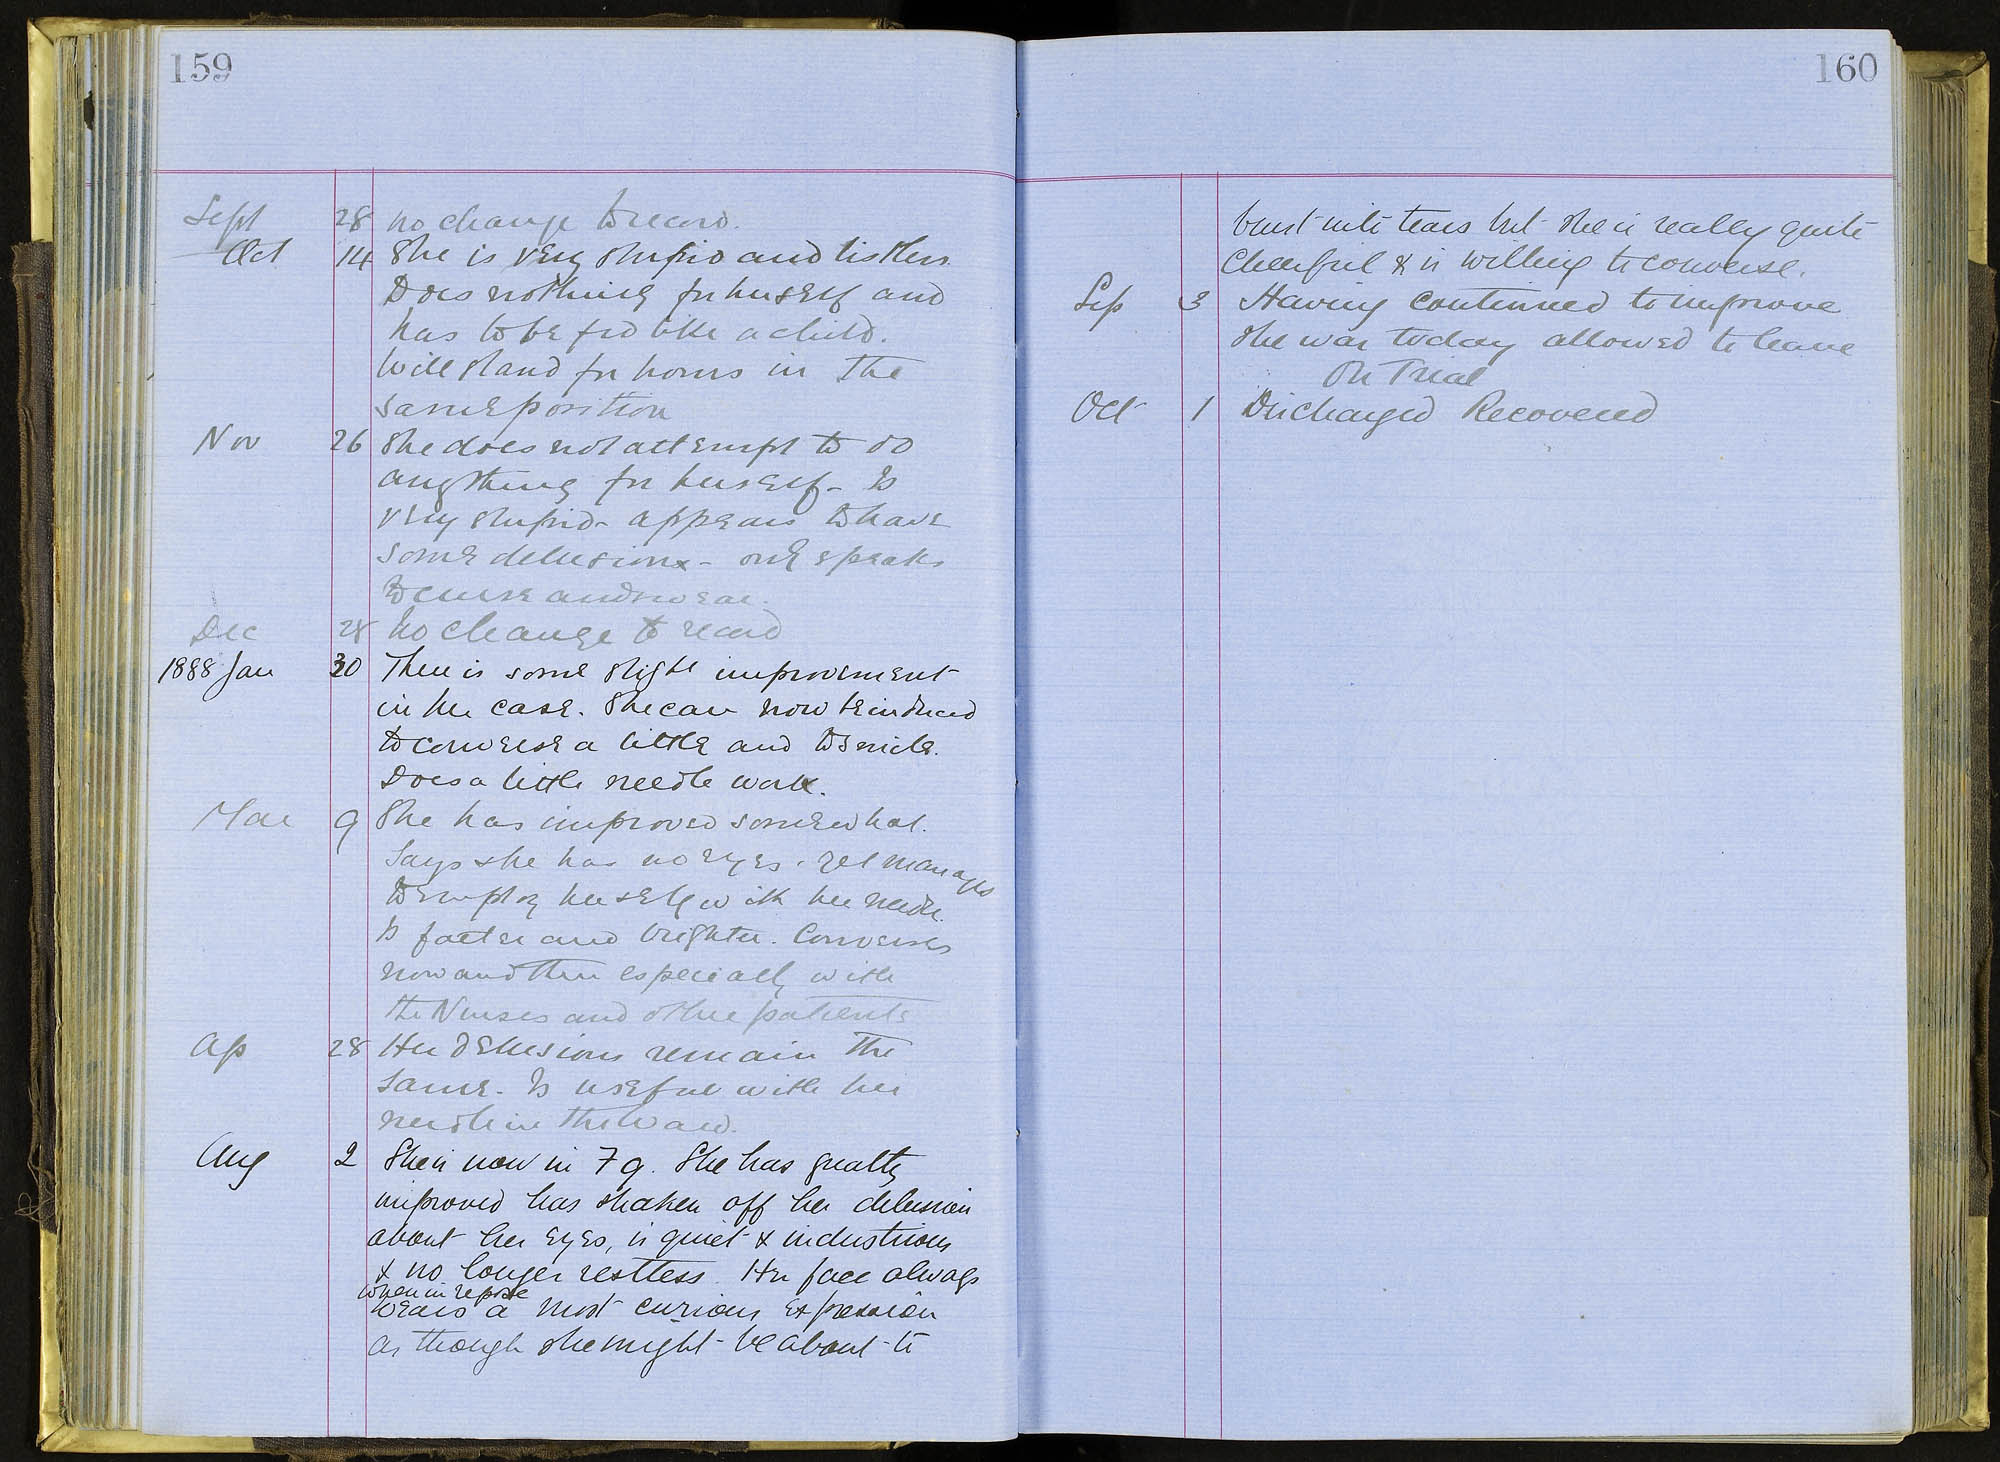 159
Sept 28 no change to record.
Oct 14 She is very stupid and listless
Does nothing for herself and
has to be fed like a child.
Will stand for hours in the
same position
Nov 26 She does not attempt to do
anything for herself - Is
very stupid - appears to have
some delusions - only speaks
to curse and swear.
Dec 28 No change to record
1888 Jan 30 There is some slight improvement
in her case. She can now be induced
to converse a little and to smile.
Does a little needle work.
Mar 9 She has improved somewhat.
Says she has no eyes. yet manages
to employ herself with her needle.
Is fatter and brighter. Converses
now and then especially with
the Nurses and other patients
Ap 28 Her delusions remain the
same. Is useful with her
needle in the ward.
Aug 2 She is now in 7 g. She has greatly
improved has shaken off her delusion
about her eyes, is quiet & industrious
& no longer restless. Her face always
when in repose
wears a most curious expression
as though she might be about to
160
burst into tears but she is really quite
cheerful & is willing to converse.
Sep 3 Having continued to improve
she was today allowed to leave
On Trial
Oct 1 Discharged Recovered